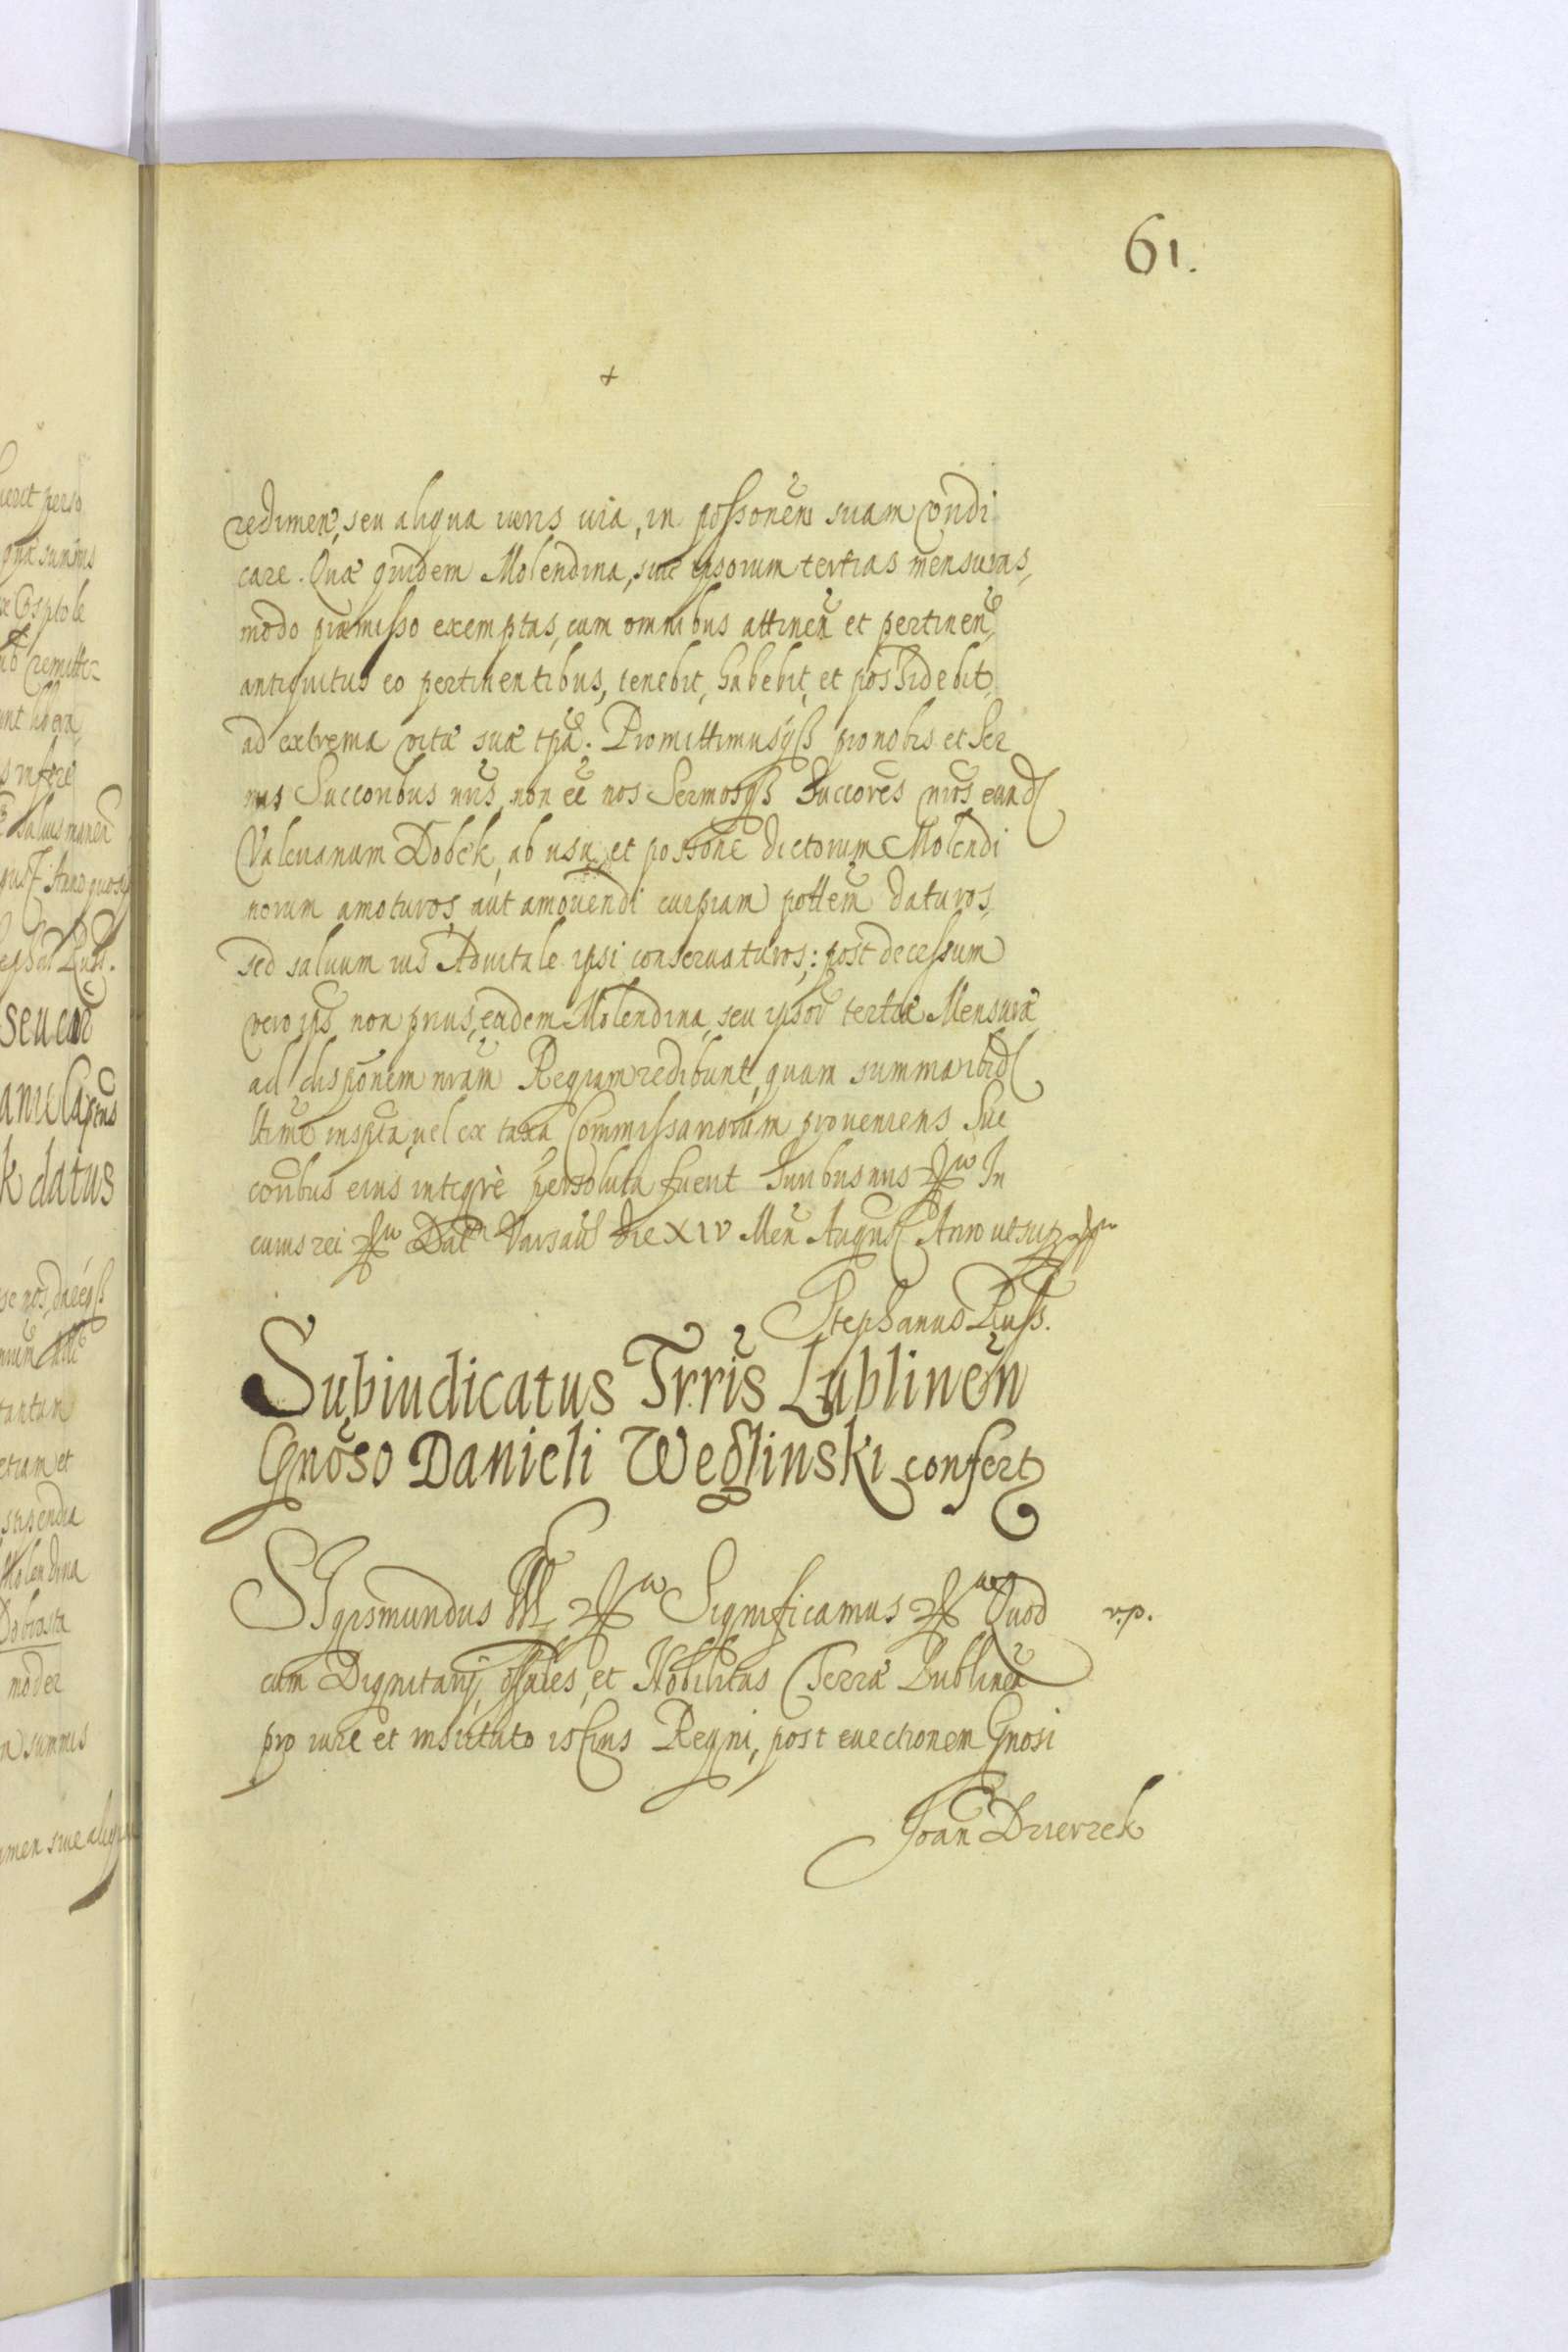 61.
+
redimen̄, seu aliqua iuris uia, in possonem̄ suam vendi
care. Quæ quidem Molendina, siue ipsorum tertias mensuras,
modo præmisso exemptas, cum omnibus attinen̄ et pertinen̄,
antiquitus eo pertinentibus, tenebit, habebit, et possidebit,
ad extrema vitæ suæ tp̄a. Promittimusqȝ pro nobis et Ser
mis Succoribus nr̄is, non eē nos Sermosqȝ Succores nr̄os eund
Valerianum Dobek, ab usu, et possone dictorum Molendi
norum amoturos, aut amouendi cuipiam pottem̄ daturos,
sed saluum ius Aduitale ipsi conseruaturos: post decessum
vero ip̄s, non prius, eadem Molendina, seu ipsor̄ tertiæ Mensuræ
ad dispōnem nr̄am Regiam redibunt, quam summa ibid
ltime inscp̄ta, uel ex taxa Commissariorum proueniens Suc
coribus eius integrè persoluta fuerit Iuribus nr̄is In
cuius rei Dat̄ Varsau die XIV Men̄ Augus Anno ut sup
Stephanus Russ.
Subiudicatus Trris̄ Lublinen̄
Gnoso Danieli Weglinski confert
SIgismundus III Significamus Quod
v.p.
cum Dignitarij, offles, et Nobilitas Terræ Lublinen̄
pro iure et instituto istius Regni, post euectionem Gnosi
Joan̄ Drzewzek